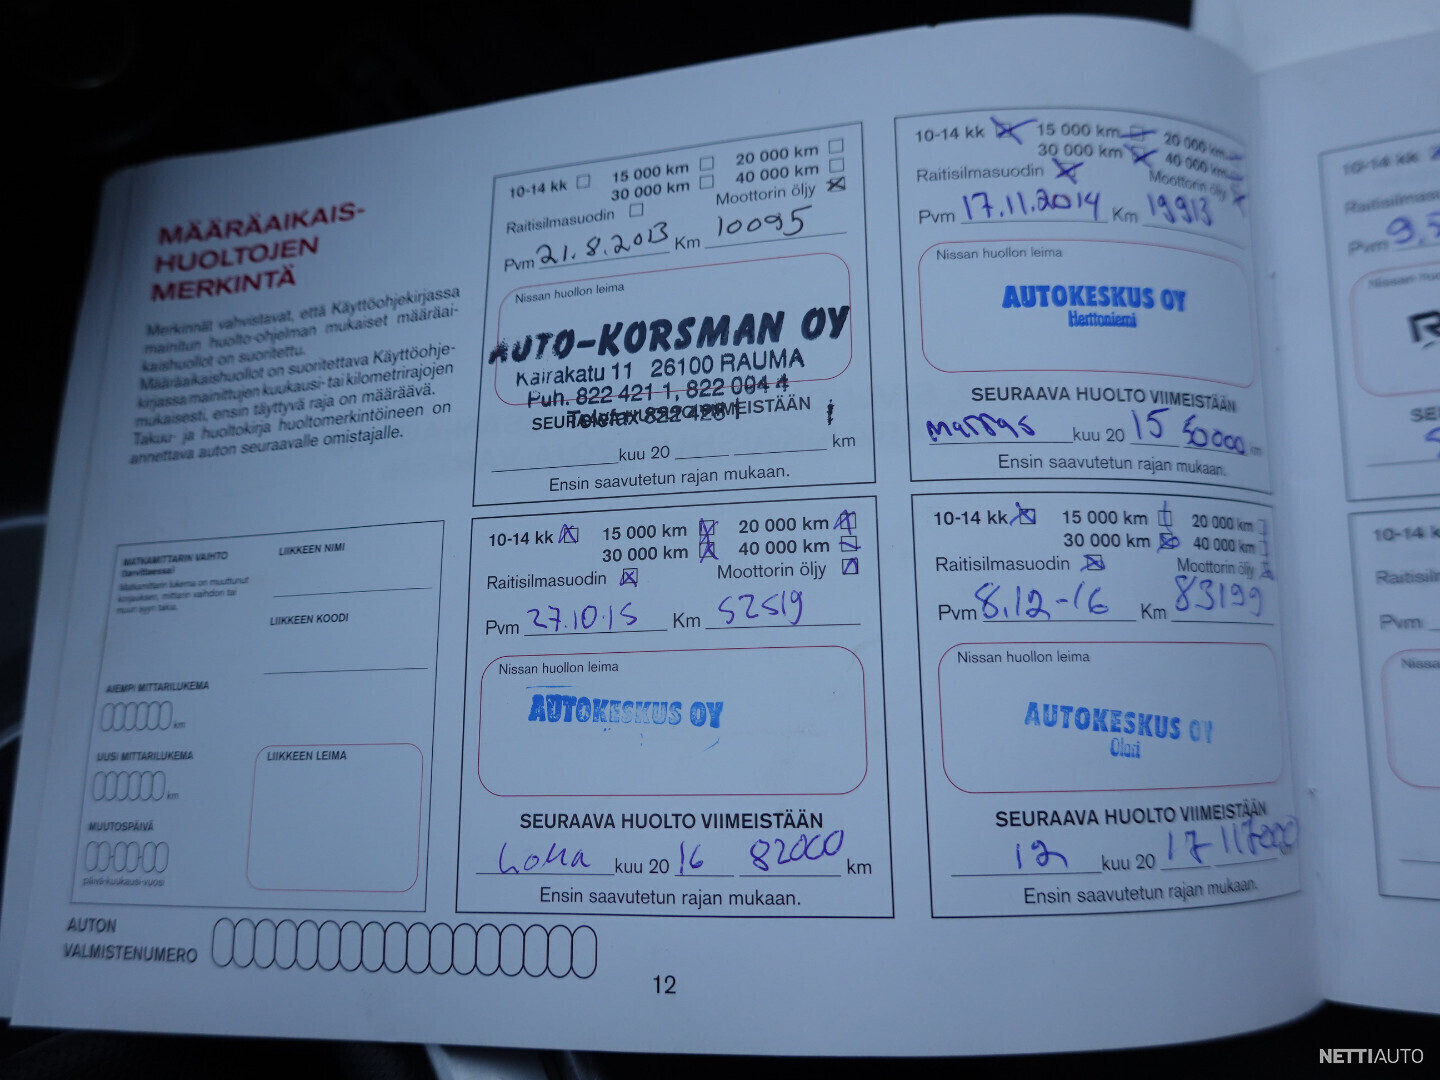 MÄÄRÄAIKAIS-
HUOLTOJEN
MERKINTÄ
Merkinnät vahvistavat, että Käyttöohjekirjassa
mainitun huolto-ohjelman mukaiset määräai-
kaishuollot on suoritettu.
Määräaikaishuollot on suoritettava Käyttöohje-
kirjassa mainittujen kuukausi- tai kilometrirajojen
mukaisesti, ensin täyttyvä raja on määräävä.
Takuu- ja huoltokirja huoltomerkintöineen on
annettava auton seuraavalle omistajalle.
MATKAMITTARIN VAIHTO
(tarvittaessa)
LIIKKEEN NIMI
LIIKKEEN KOODI
AIEMPI MITTARILUKEMA
km
UUSI MITTARILUKEMA
km
MUUTOSPÄIVÄ
päivä-kuukausi-vuosi
LIIKKEEN LEIMA
AUTON
VALMISTENUMERO
10-14 kk 15 000 km 20 000 km
30 000 km 40 000 km
Raitisilmasuodin Moottorin öljy
Pvm 21.8.2013 Km 10095
Nissan huollon leima
AUTO-KORSMAN OY
Kairakatu 11 26100 RAUMA
Puh. 822 421 1, 822 004 4
Telefax 822 428
SEURAAVA HUOLTO VIIMEISTÄÄN
kuu 20 km
Ensin saavutetun rajan mukaan.
10-14 kk 15 000 km 20 000 km
30 000 km 40 000 km
Raitisilmasuodin Moottorin öljy
Pvm 17.11.2014 Km 19913
Nissan huollon leima
AUTOKESKUS OY
Herttoniemi
SEURAAVA HUOLTO VIIMEISTÄÄN
marras kuu 20 15 50000 km
Ensin saavutetun rajan mukaan.
10-14 kk 15 000 km 20 000 km
30 000 km 40 000 km
Raitisilmasuodin Moottorin öljy
Pvm 27.10.15 Km 52519
Nissan huollon leima
AUTOKESKUS OY
SEURAAVA HUOLTO VIIMEISTÄÄN
Loka kuu 20 16 82000 km
Ensin saavutetun rajan mukaan.
10-14 kk 15 000 km 20 000 km
30 000 km 40 000 km
Raitisilmasuodin Moottorin öljy
Pvm 8.12-16 Km 83199
Nissan huollon leima
AUTOKESKUS OY
Olari
SEURAAVA HUOLTO VIIMEISTÄÄN
12 kuu 20 17 117000
Ensin saavutetun rajan mukaan.
12
10-14 kk
Raitisilmasuo
Pvm 9.5
10-14 k
Raitisilm
Pvm
Nissa
NETTIAUTO